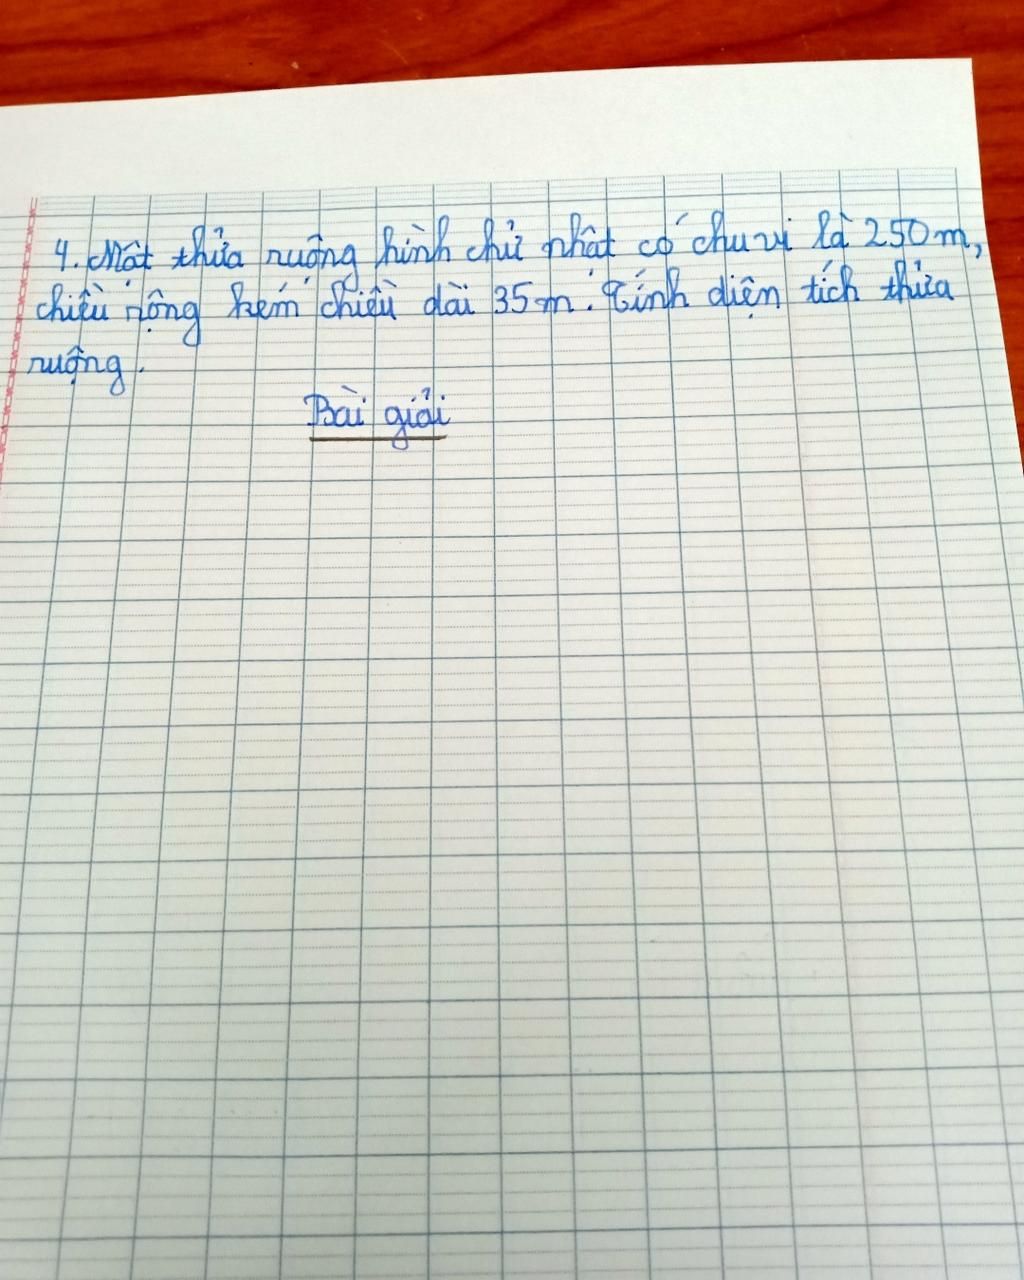 4. Một thửa ruộng hình chữ nhật có chu vi là 250m,
chiều rộng kém chiều dài 35m. Tính diện tích thửa
ruộng.
Bài giải